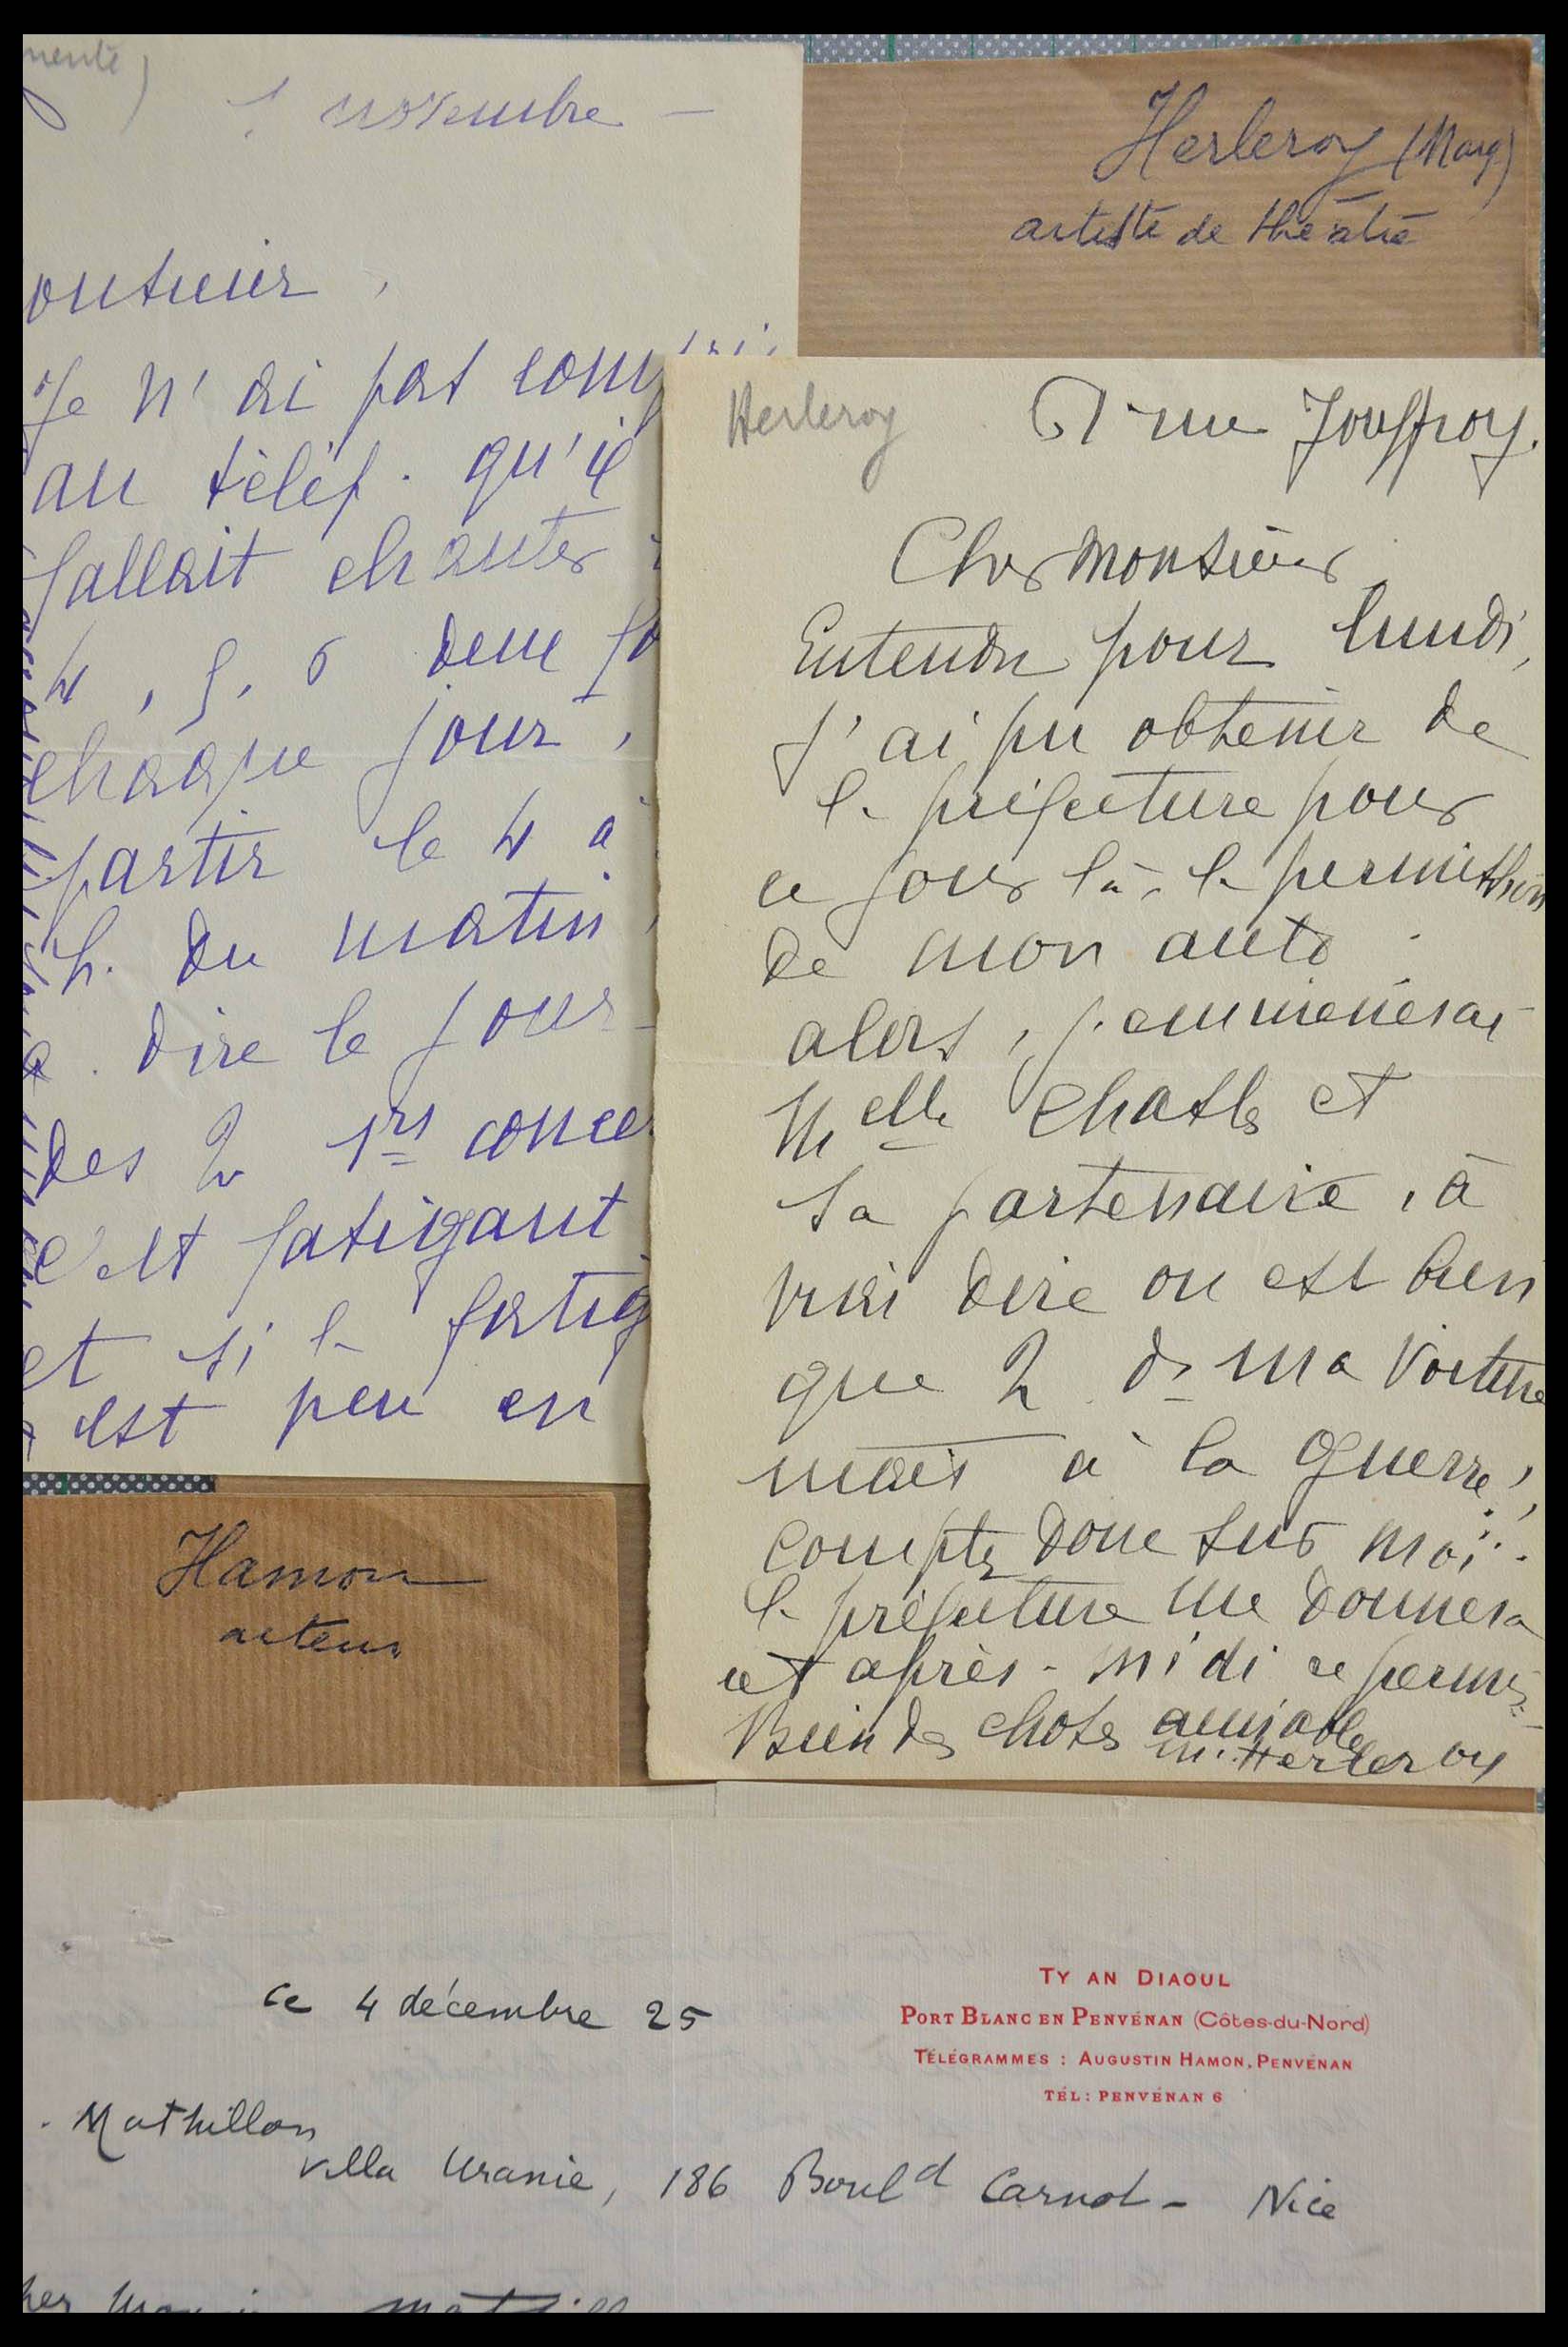 novembre -
Je n'ai pas
au téléf. qu'il
fallait chanter
4, 5, 6
chaque jour,
partir le 4 à
h. du matin
dire le jour
des 2 1rs
c'est fatigant
et si la
est peu en
Herleroy (Marg)
artiste de théâtre
Herleroy
rue Jouffroy.
Cher Monsieur
Entendu pour lundi,
j'ai pu obtenir de
la préfecture pour
ce jour là, la permission
de mon auto
alors, j'emmènerai
Melle et
sa partenaire, à
vrai dire on est bien
que 2 ds ma voiture
mais à la guerre!,
comptez donc sur moi.
la préfecture me donnera
cet après-midi ce permis
Bien des choses aimables
M. Herleroy
Hamon
acteur
ce 4 décembre 25
TY AN DIAOUL
PORT BLANC EN PENVÉNAN (Côtes-du-Nord)
TÉLÉGRAMMES : AUGUSTIN HAMON, PENVÉNAN
TÉL : PENVÉNAN 6
Mathillon
villa Uranie, 186 Bould Carnot - Nice